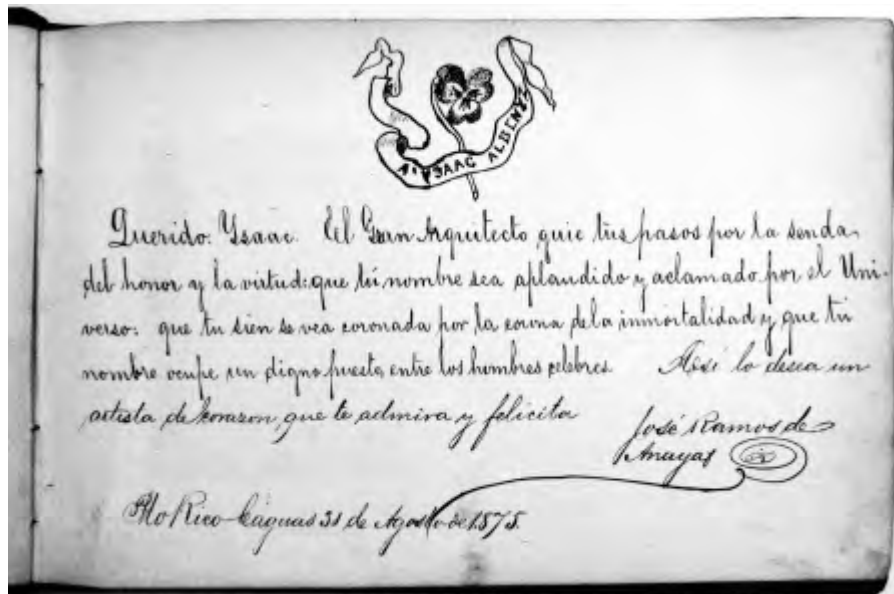 A. YSAAC ALBENIZ
Querido: Ysaac. El Gran Arquitecto guie tus pasos por la senda
del honor y la virtud: que tú nombre sea aplaudido y aclamado por el Uni-
verso: que tu sien se vea coronada por la corona de la inmortalidad y que tú
nombre ocupe un digno puesto entre los hombres celebres Asi lo desea un
artista de korazon que te admira y felicita
José Ramos de
Anayas
Pto Rico-Cáguas 31 de Agosto de 1875.